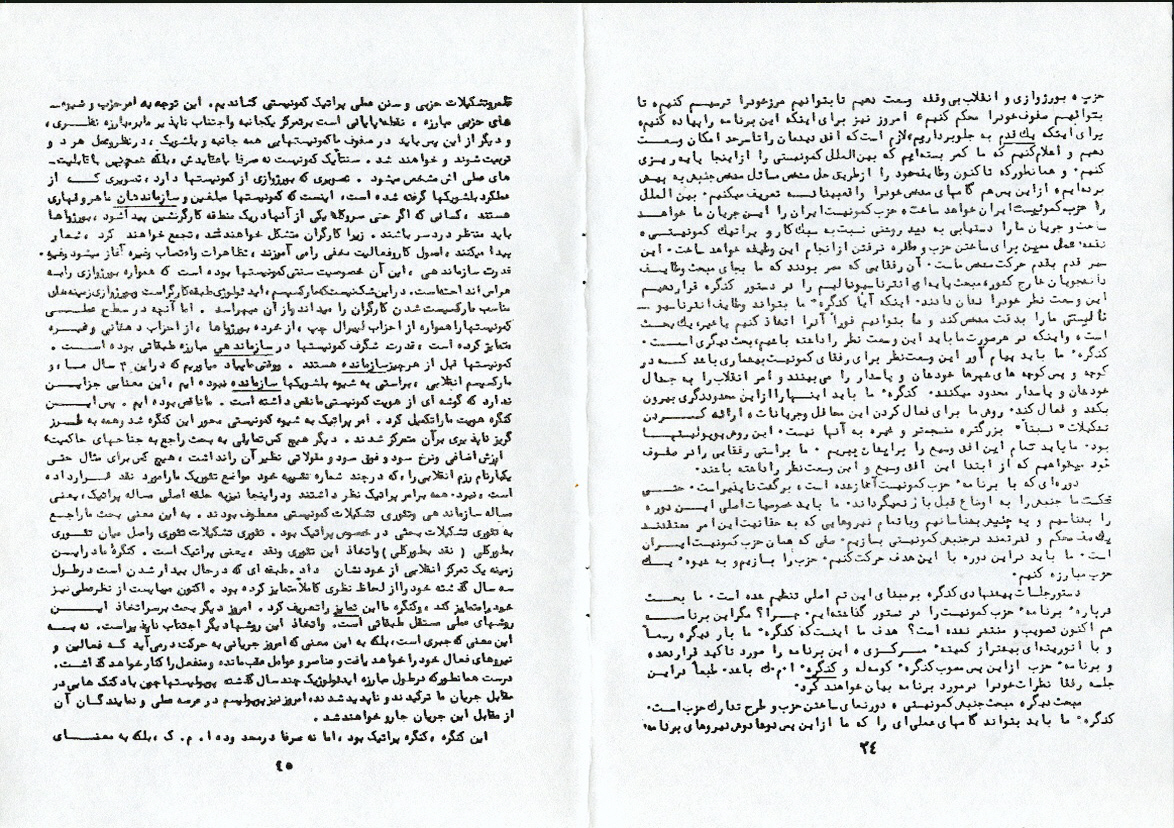 حزب، بورژوازی و انقلاب بی وقفه وسعت دهیم تا بتوانیم مرز خود را ترسیم کنیم، تا
بتوانیم صفوف خود را محکم کنیم، امروز نیز برای اینکه این برنامه را پیاده کنیم،
برای اینکه یک قدم به جلو برداریم، لازم است که افق دیدمان را تا سرحد امکان وسعت
دهیم و اعلام کنیم که ما کمر بسته ایم که بین الملل کمونیستی را از اینجا پایه ریزی
کنیم. و همانطور که تاکنون وظایف خود را از طریق حل مشخص مسائل مشخص جنبش به پیش
برده ایم، از این پس هم گامهای مشخص خود را واقعبینانه تعریف میکنیم. بین الملل
را حزب کمونیست ایران خواهد ساخت، حزب کمونیست ایران را این جریان ما خواهد
ساخت و جریان ما را دستیابی به دید روشنی نسبت به سبک کار و پراتیک کمونیستی،
نقشه عمل معین برای ساختن حزب و طفره نرفتن از انجام این وظیفه خواهد ساخت. این
سیر قدم بقدم حرکت مشخص ماست. آن رفقایی که مصر بودند که ما بجای مبحث وظایف
دانشجویان خارج کشور، مبحث پایه ای انترناسیونالیسم را در دستور کنگره قرار دهیم
این وسعت نظر خود را نشان دادند. اینکه آیا کنگره ما بتواند وظایف انترناسیو-
نالیستی ما را بدقت مشخص کند و ما بتوانیم فورا آنرا اتخاذ کنیم یا خیر، یک بحث
است، و اینکه در هر صورت ما باید این وسعت نظر را داشته باشیم، بحث دیگری است.
کنگره ما باید پیام آور این وسعت نظر برای رفقای کمونیست بیشماری باشد که در
کوچه و پس کوچه های شهرها خودشان و پاسدار را می بینند و امر انقلاب را به جدال
خودشان و پاسدار محدود میکنند. کنگره ما باید اینها را از این محدودنگری بیرون
بکشد و فعال کند. روش ما برای فعال کردن این محافل و جریانات، ارائه کردن
تشکیلات "نسبتاً" بزرگتر، منسجمتر و غیره به آنها نیست. این روش پوپولیستها
بود. ما باید تمام این افق وسیع را برایشان ببریم. ما براستی رفقایی را در صفوف
خود میخواهیم که از ابتدا این افق وسیع و این وسعت نظر را داشته باشند.
دوره ای که با برنامه حزب کمونیست آغاز شده است، برگشت ناپذیر است. حتی
شکست ما جنبش را به اوضاع قبل باز نمیگرداند. ما باید خصوصیات اصلی این دوره
را بشناسیم و به جنبش بشناسانیم و با تمام نیروهایی که به حقانیت این امر معتقدند
یک صف محکم و قدرتمند در جنبش کمونیستی بسازیم. صفی که همان حزب کمونیست ایران
است. ما باید در این دوره با این هدف حرکت کنیم. حزب را بسازیم، و به شیوه یک
حزب مبارزه کنیم.
دستور جلسات پیشنهادی کنگره بر مبنای این تم اصلی تنظیم شده است. ما بحث
درباره "برنامه" حزب کمونیست را در دستور گذاشته ایم. چرا؟ مگر این برنامه
هم اکنون تصویب و منتشر نشده است؟ هدف ما اینست که کنگره ما بار دیگر، رسماً
و با اتوریته ای بیشتر از کمیته مرکزی، این برنامه را مورد تاکید قرار دهد،
و برنامه حزب از این پس مصوب کنگره کومه له و کنگره ا.م.ک باشد. طبعاً در این
جلسه رفقا نظرات خود را در مورد برنامه بیان خواهند کرد.
مبحث دیگر، مبحث جنبش کمونیستی، دورنمای ساختن حزب و طرح تدارک حزب است.
کنگره ما باید بتواند گامهای عملی ای را که ما از این پس دوشادوش نیروهای برنامه،
٢٤
قلمرو تشکیلات حزبی و سنن عملی پراتیک کمونیستی کشاندیم. این توجه به امر حزب و شیوه-
های حزبی مبارزه، نقطه پایانی است بر تمرکز یکجانبه و اجتناب ناپذیر ما بر مبارزه نظری،
و دیگر از این پس باید در صفوف ما کمونیستهایی همه جانبه و بلشویک، در نظر و عمل هر دو
تربیت شوند و خواهند شد. سنتاً یک کمونیست نه صرفا با عقایدش، بلکه همچنین با قابلیت-
های عملی اش مشخص میشود. تصویری که بورژوازی از کمونیستها دارد، تصویری که از
عملکرد بلشویکها گرفته شده است، اینست که کمونیستها مبلغین و سازماندهان ماهر و قهاری
هستند، کسانی که اگر حتی سر و کله یکی از آنها در یک منطقه کارگرنشین پیدا شود، بورژواها
باید منتظر دردسر باشند. زیرا کارگران متشکل خواهند شد، تجمع خواهند کرد، شعار
پیدا میکنند، اصول کار و فعالیت مخفی را می آموزند، تظاهرات و اعتصاب و غیره آغاز میشود و غیره.
قدرت سازماندهی، این آن خصوصیت سنتی کمونیستها بوده است که همواره بورژوازی را به
هراس انداخته است. در این شک نیست که مارکسیسم، ایدئولوژی طبقه کارگر است و بورژوازی زمینه های
مناسب مارکسیست شدن کارگران را میداند و از آن میهراسد. اما آنچه در سطح عملی
کمونیستها را همواره از احزاب لیبرال چپ، از خرده بورژواها، از احزاب دهقانی و غیره
متمایز کرده است، قدرت شگرف کمونیستها در سازماندهی مبارزه طبقاتی بوده است.
کمونیستها قبل از هر چیز سازمانده هستند. و وقتی ما بیاد میاوریم که در این ٣ سال ما، و
مارکسیسم انقلابی، براستی به شیوه بلشویکها سازمانده نبوده ایم، این معنایی جز این
ندارد که گوشه ای از هویت کمونیستی ما نقص داشته است. ما ناقص بوده ایم. پس این
کنگره هویت ما را تکمیل کرد. امر پراتیک به شیوه کمونیستی محور این کنگره شد و همه به طرز
گریز ناپذیری بر آن متمرکز شدند. دیگر هیچ کس تمایلی به بحث راجع به جناحهای حاکمیت،
ارزش اضافی و نرخ سود و فوق سود و مقولاتی نظیر آن را نداشت، هیچ کس برای مثال حتی
یکبار نام رزم انقلابی را، که در چند شماره نشریه خود مواضع تئوریک ما را مورد نقد قرار داده
است، نبرد. همه بر امر پراتیک نظر داشتند و در اینجا نیز به حلقه اصلی مساله پراتیک، یعنی
مساله سازماندهی و تئوری تشکیلات کمونیستی معطوف بودند. به این معنی بحث ما راجع
به تئوری تشکیلات بحثی در خصوص پراتیک بود. تئوری تشکیلات تئوری واصل میان تئوری
بطور کلی (نقد بطور کلی) و اتخاذ این تئوری و نقد، یعنی پراتیک است. کنگره ما در این
زمینه یک تمرکز انقلابی از خود نشان داد. طبقه ای که در حال بیدار شدن است در طول
سه سال گذشته خود را از لحاظ نظری کاملاً متمایز کرده بود. اکنون میبایست از نظر عملی نیز
خود را متمایز کند، و کنگره ما این تمایز را تعریف کرد. امروز دیگر بحث بر سر اتخاذ این
روشهای عملی مستقل طبقاتی است. و اتخاذ این روشها دیگر اجتناب ناپذیر است. نه به
این معنی که جبری است، بلکه به این معنی که امروز جریانی به حرکت درمی آید که فعالین و
نیروهای فعال خود را خواهد یافت و عناصر و عوامل عقب مانده و منفعل را کنار خواهد گذاشت.
درست همانطور که در طول مبارزه ایدئولوژیک چند سال گذشته پوپولیستها چون بادکنک هایی در
مقابل جریان ما ترکیدند و ناپدید شدند، امروز نیز پوپولیسم در عرصه عملی و نمایندگان آن
از مقابل این جریان جارو خواهند شد.
این کنگره، کنگره پراتیک بود، اما نه صرفا در محدوده ا.م.ک، بلکه به معنای
٤٥